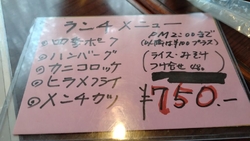 ランチメニュー
①切身ポーク
②ハンバーグ
③カニコロッケ
④ヒラメフライ
⑤メンチカツ
PM2:00まで
(以降は¥100プラス)
(ライス・みそ汁
つけ合せ
¥750.-